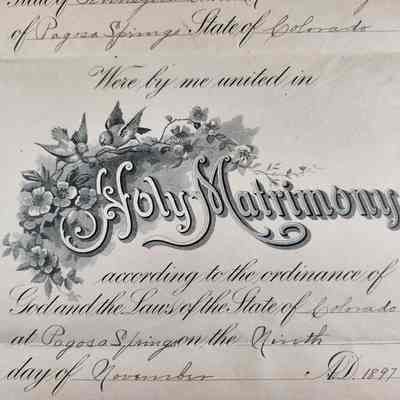 State of
of Pagosa Springs State of Colorado
Were by me united in
Holy Matrimony
according to the ordinance of
God and the Laws of the State of Colorado
at Pagosa Springs on the Ninth
day of November A.D. 1897